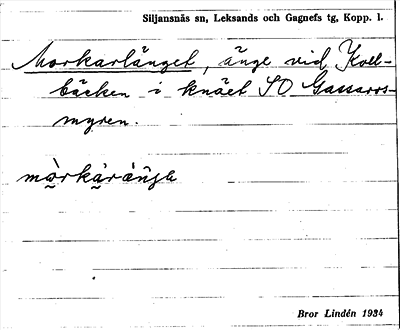 Siljansnäs sn, Leksands och Gagnefs tg, Kopp. l.
Morkarlänget, änge vid Koll-
bäcken i knäet SO Gassaros-
myren.
Bror Lindén 1934